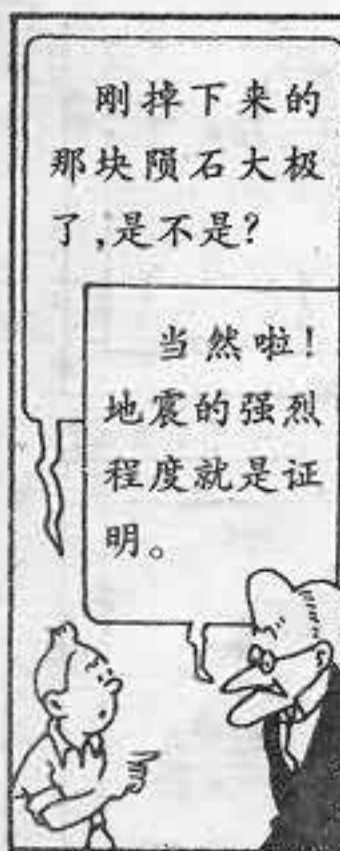 刚掉下来的
那块陨石大极
了,是不是?
当然啦!
地震的强烈
程度就是证
明。